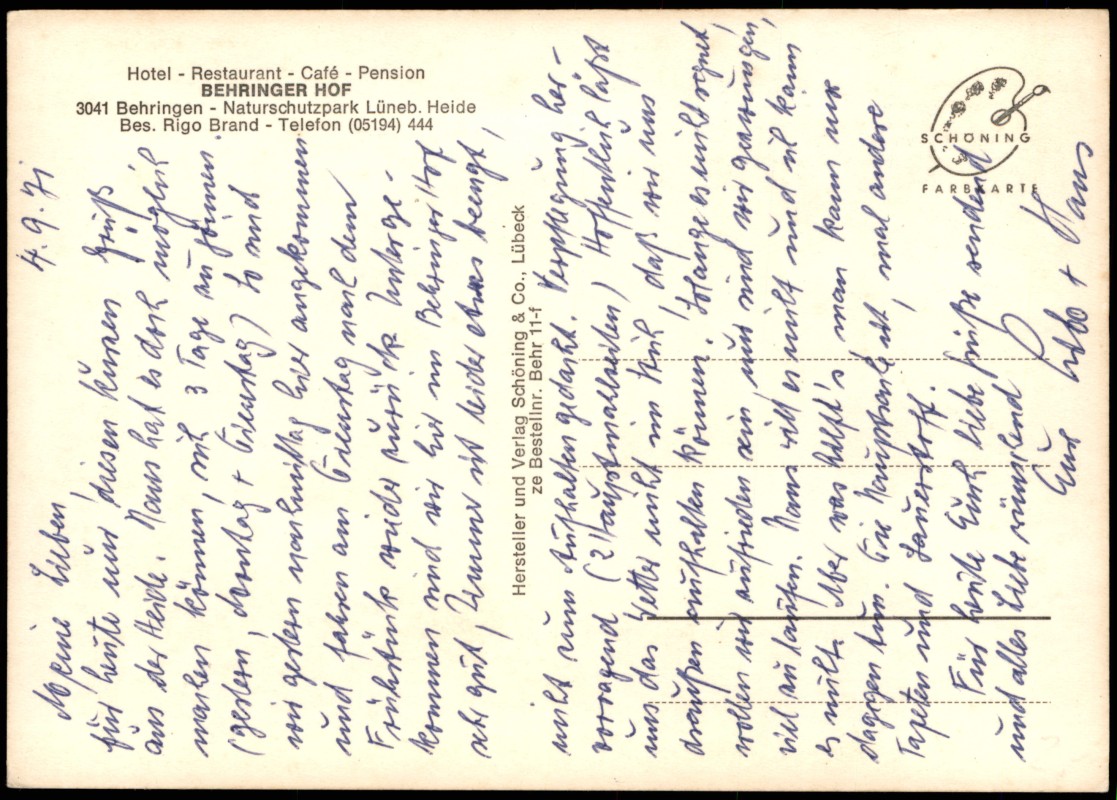 Hotel - Restaurant - Café - Pension
BEHRINGER HOF
3041 Behringen - Naturschutzpark Lüneb. Heide
Bes. Rigo Brand - Telefon (05194) 444
SCHÖNING
FARBKARTE
Hersteller und Verlag Schöning & Co., Lübeck
ze Bestellnr. Behr 11-f
4.9.71
Meine Lieben,
für heute nur diesen kurzen Gruß
aus der Heide. Hans hat es doch möglich
machen können, sich 3 Tage zu gönnen.
(gestern, Montag + Dienstag) So sind
wir gestern nachmittag hier angekommen
und fahren am Dienstag nach dem
Frühstück wieder zurück. Unterge-
kommen sind wir hier im Behringer Hof
sehr gut, Zimmer ist leider etwas beengt,
nicht zum Aufhalten gedacht. Verpflegung her-
vorragend (2 Hauptmahlzeiten) Hoffentlich läßt
uns das Wetter nicht im Stich, daß wir uns
draußen aufhalten können. Solange es nicht regnet,
wollen wir zufrieden sein, nur sind wir gezwungen,
viel zu laufen. Hans will es nicht und ich kann
es nicht. Aber was hilft's man kann nur
dagegen tun. Die Hauptsache ist, mal andere
Tapeten und Sauerstoff.
Für heute Euch liebe Grüße sendend
und alles Liebe wünschend
Eure + Hans